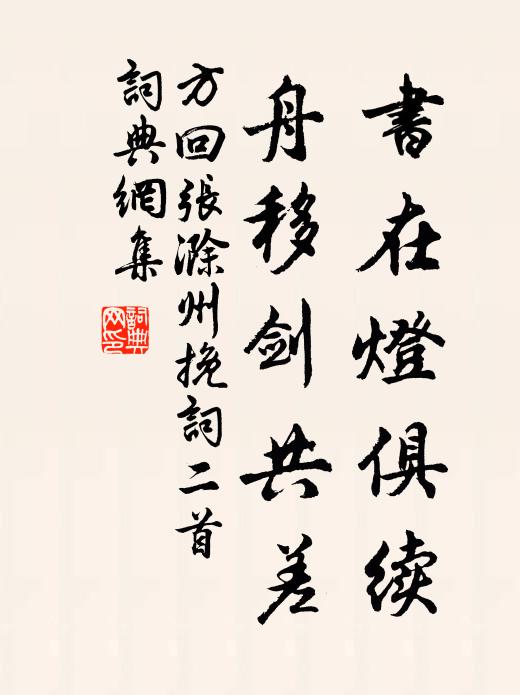 書在燈俱续
舟移剑共差
方回張滁州挽詞二首
詞典網集
詞典网印